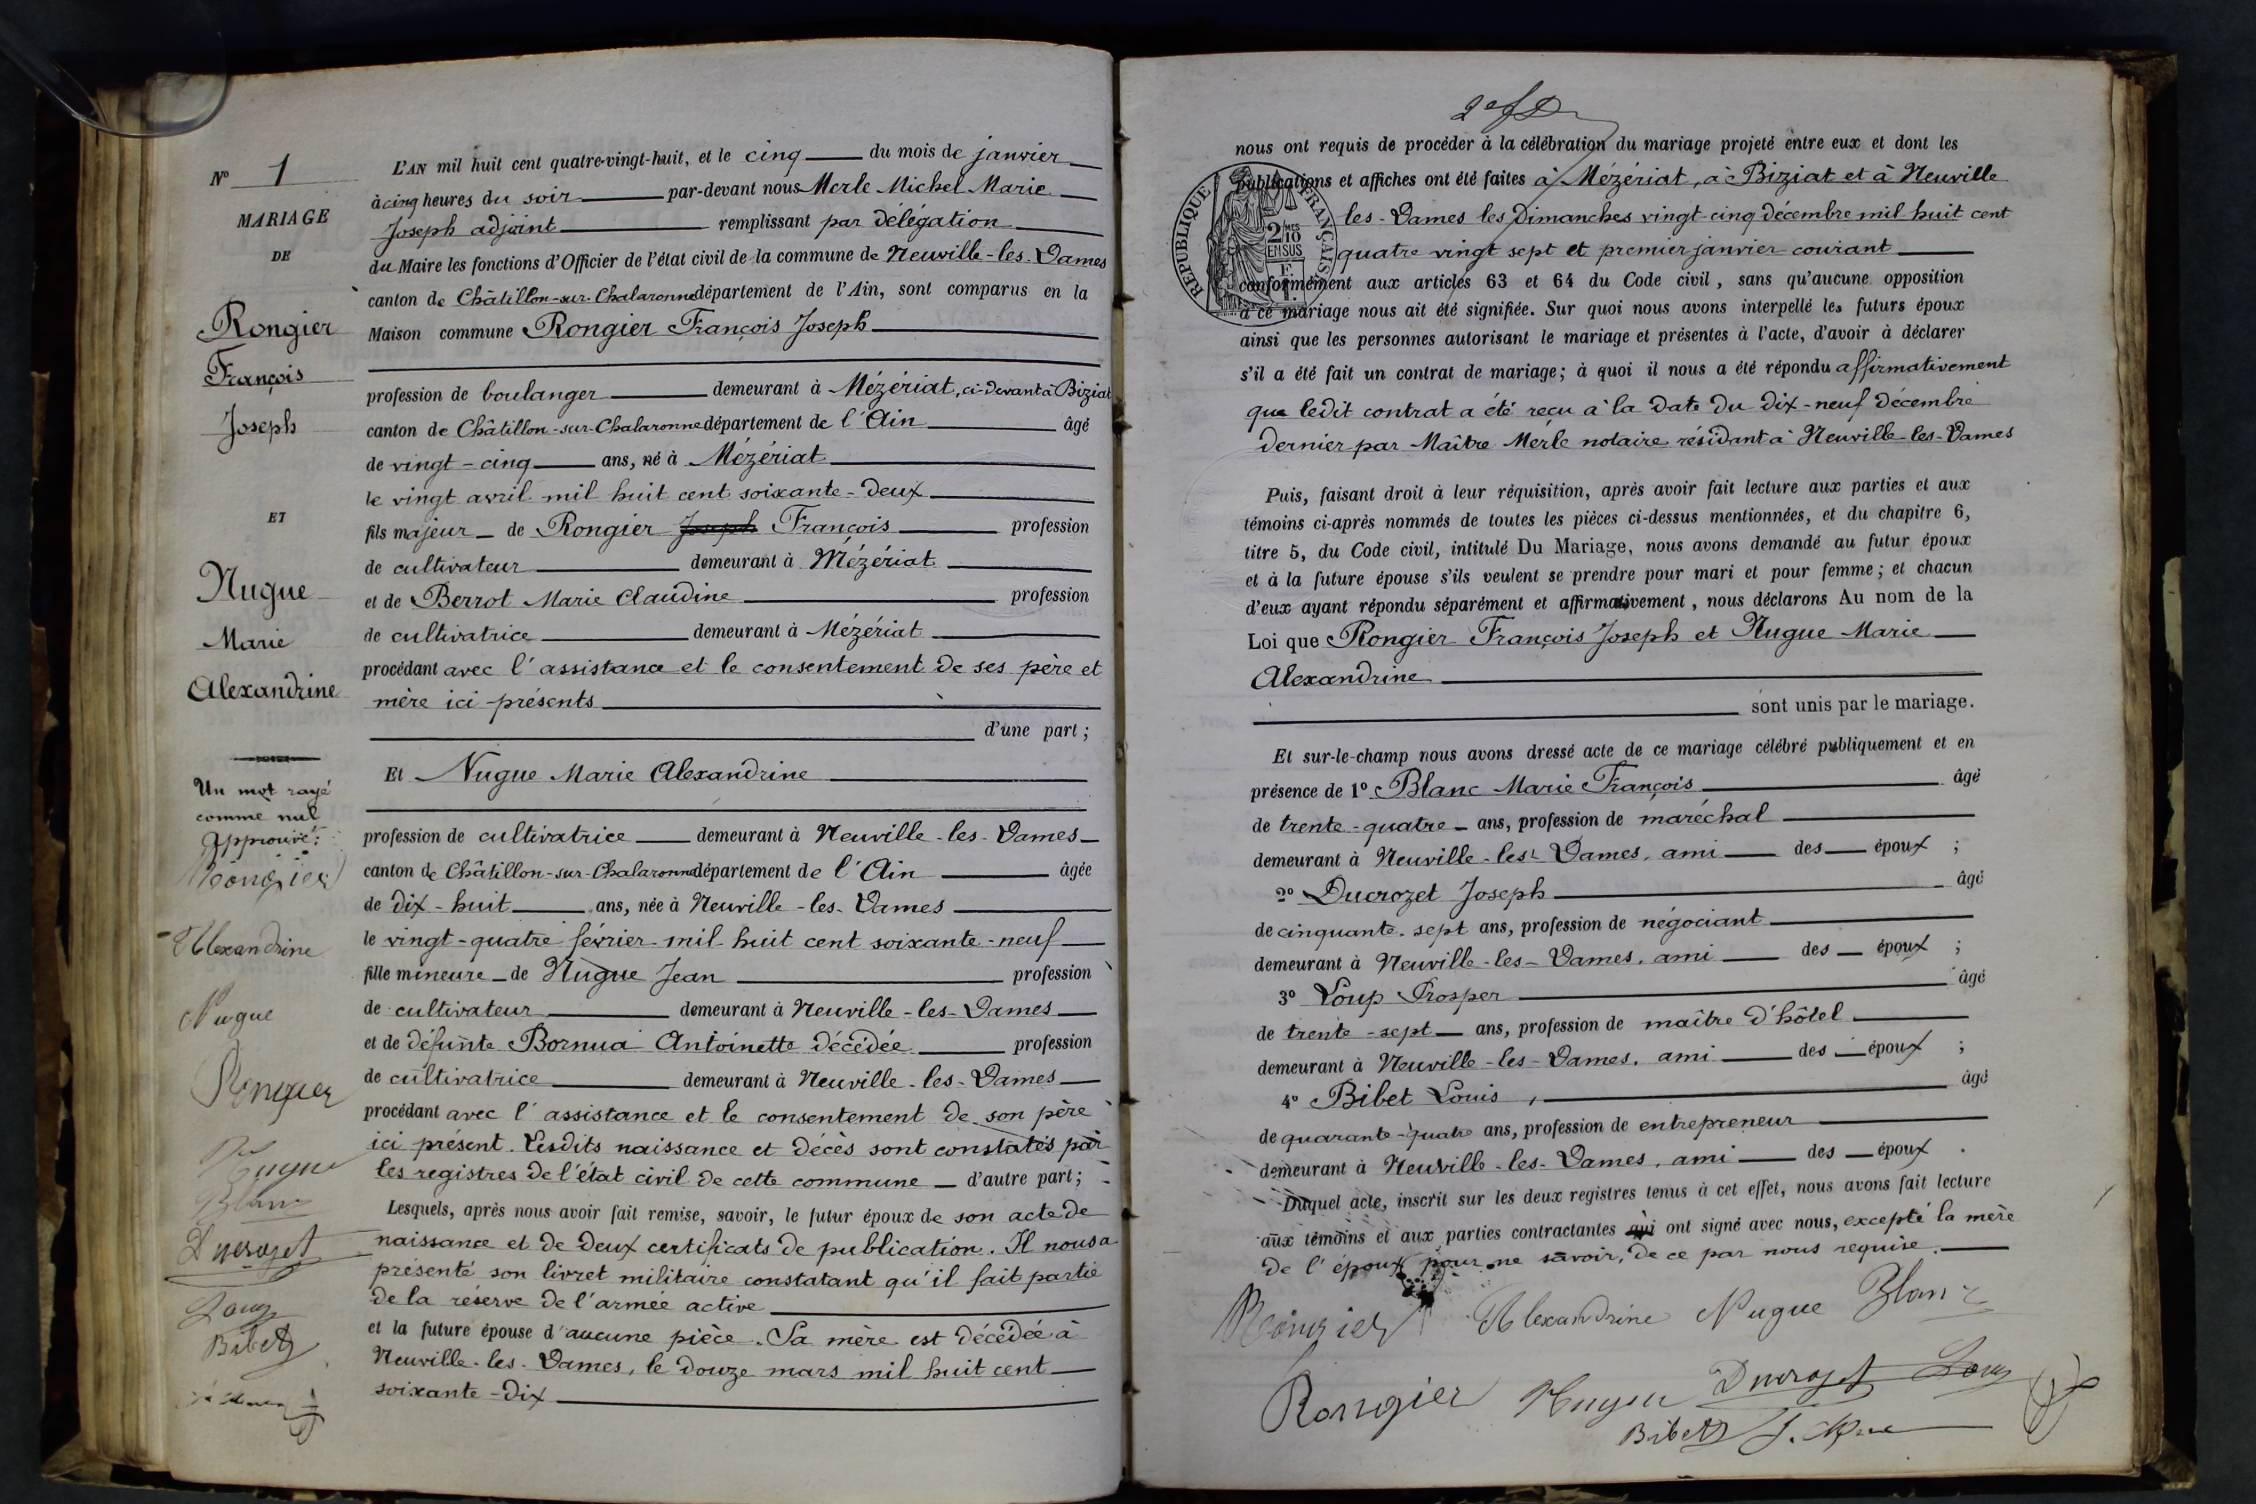 N° 1
MARIAGE
DE
Rongier
François
Joseph
ET
Nugue
Marie
Alexandrine
Un mot rayé
comme nul
Approuvé:
Rongier
Alexandrine
Nugue
Rongier
Nugue
Blanc
Ducrozet
Loup
Bibet
L'AN mil huit cent quatre-vingt-huit, et le cinq du mois de janvier
à cinq heures du soir par-devant nous Merle Michel Marie
Joseph adjoint remplissant par délégation
du Maire les fonctions d'Officier de l'état civil de la commune de Neuville-les-Dames
canton de Châtillon-sur-Chalaronne département de l'Ain, sont comparus en la
Maison commune Rongier François Joseph
profession de boulanger demeurant à Mézériat, ci-devant à Biziat
canton de Châtillon-sur-Chalaronne département de l'Ain âgé
de vingt-cinq ans, né à Mézériat
le vingt avril mil huit cent soixante-deux
fils majeur de Rongier Joseph François profession
de cultivateur demeurant à Mézériat
et de Berrot Marie Claudine profession
de cultivatrice demeurant à Mézériat
procédant avec l'assistance et le consentement de ses père et
mère ici présents
d'une part;
Et Nugue Marie Alexandrine
profession de cultivatrice demeurant à Neuville-les-Dames
canton de Châtillon-sur-Chalaronne département de l'Ain âgée
de dix-huit ans, née à Neuville-les-Dames
le vingt-quatre février mil huit cent soixante-neuf
fille mineure de Nugue Jean profession
de cultivateur demeurant à Neuville-les-Dames
et de défunte Bornua Antoinette décédée profession
de cultivatrice demeurant à Neuville-les-Dames
procédant avec l'assistance et le consentement de son père
ici présent. Lesdits naissance et décès sont constatés par
les registres de l'état civil de cette commune d'autre part;
Lesquels, après nous avoir fait remise, savoir, le futur époux de son acte de
naissance et de deux certificats de publication. Il nous a
présenté son livret militaire constatant qu'il fait partie
de la réserve de l'armée active
et la future épouse d'aucune pièce. Sa mère est décédée à
Neuville-les-Dames, le douze mars mil huit cent
soixante-dix
nous ont requis de procéder à la célébration du mariage projeté entre eux et dont les
publications et affiches ont été faites à Mézériat, à Biziat et à Neuville
les-Dames les Dimanches vingt-cinq décembre mil huit cent
quatre vingt sept et premier janvier courant
RÉPUBLIQUE FRANÇAISE
2 MES
10
EN SUS
conformément aux articles 63 et 64 du Code civil, sans qu'aucune opposition
à ce mariage nous ait été signifiée. Sur quoi nous avons interpellé les futurs époux
ainsi que les personnes autorisant le mariage et présentes à l'acte, d'avoir à déclarer
s'il a été fait un contrat de mariage; à quoi il nous a été répondu affirmativement
que ledit contrat a été reçu à la date du dix-neuf décembre
dernier par Maître Merle notaire résidant à Neuville-les-Dames
Puis, faisant droit à leur réquisition, après avoir fait lecture aux parties et aux
témoins ci-après nommés de toutes les pièces ci-dessus mentionnées, et du chapitre 6,
titre 5, du Code civil, intitulé Du Mariage, nous avons demandé au futur époux
et à la future épouse s'ils veulent se prendre pour mari et pour femme; et chacun
d'eux ayant répondu séparément et affirmativement, nous déclarons Au nom de la
Loi que Rongier François Joseph et Nugue Marie
Alexandrine
sont unis par le mariage.
Et sur-le-champ nous avons dressé acte de ce mariage célébré publiquement et en
présence de 1° Blanc Marie François âgé
de trente-quatre ans, profession de maréchal
demeurant à Neuville-les-Dames, ami des époux;
2° Ducrozet Joseph âgé
de cinquante-sept ans, profession de négociant
demeurant à Neuville-les-Dames, ami des époux;
3° Loup Prosper âgé
de trente-sept ans, profession de maître d'hôtel
demeurant à Neuville-les-Dames, ami des époux;
4° Bibet Louis, âgé
de quarante-quatre ans, profession de entrepreneur
demeurant à Neuville-les-Dames, ami des époux.
Duquel acte, inscrit sur les deux registres tenus à cet effet, nous avons fait lecture
aux témoins et aux parties contractantes qui ont signé avec nous, excepté la mère
de l'époux pour ne savoir, de ce par nous requise.
Rongier Alexandrine Nugue Blanc
Rongier Nugue Ducrozet Loup
Bibet